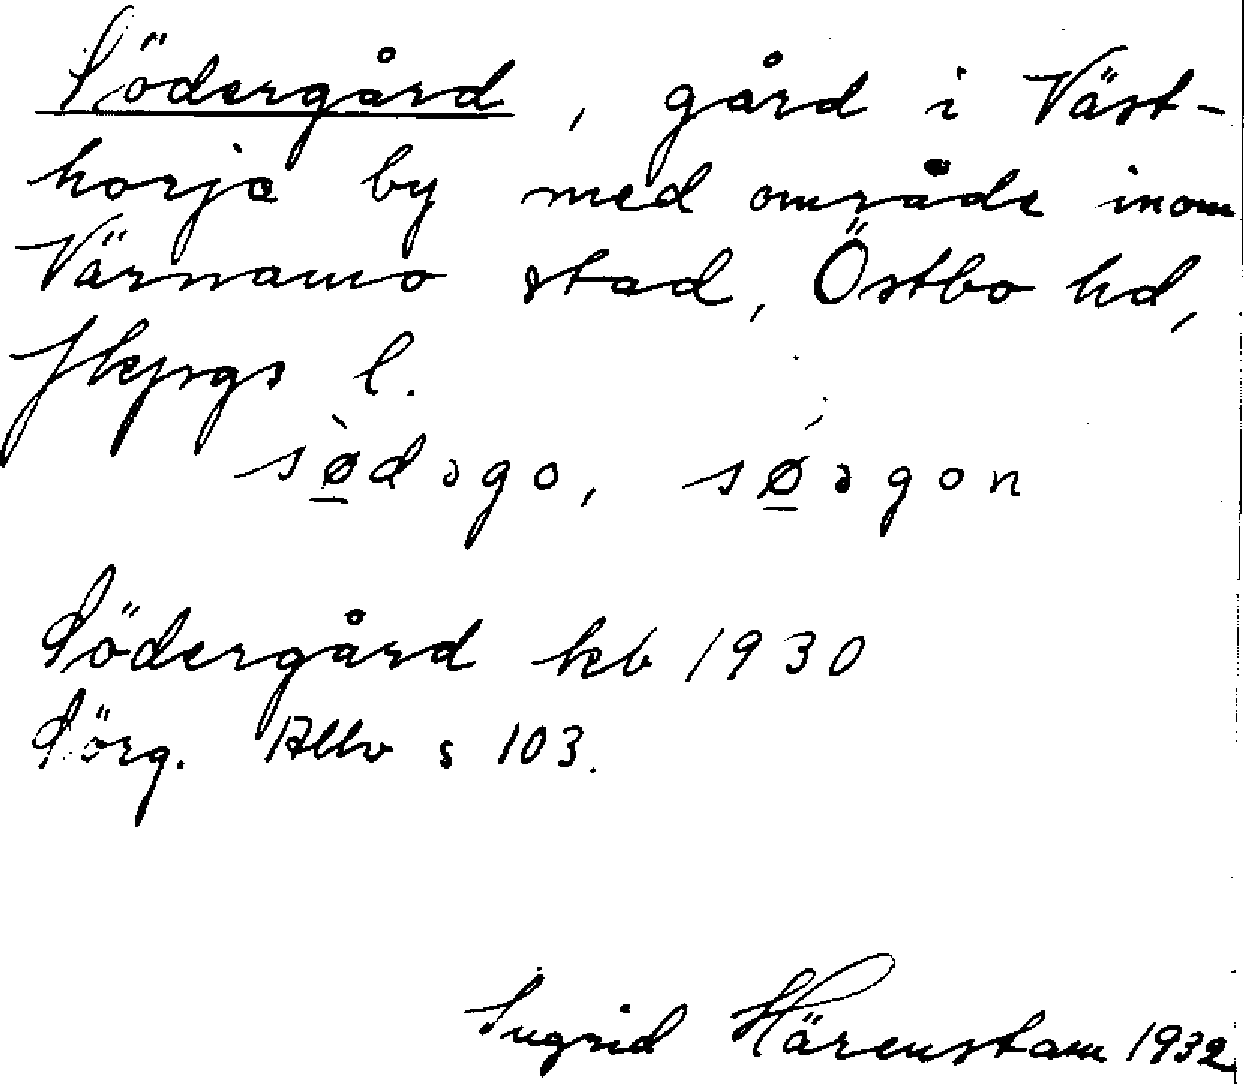 Södergård, gård i Väst-
horja by med område inom
Värnamo stad, Östbo hd,
Jkpgs l.
sø̲̀dəgo, sǿ̲əgon
Södergård kb 1930
Sörg. Allv s 103.
Ingrid Härenstam 1932